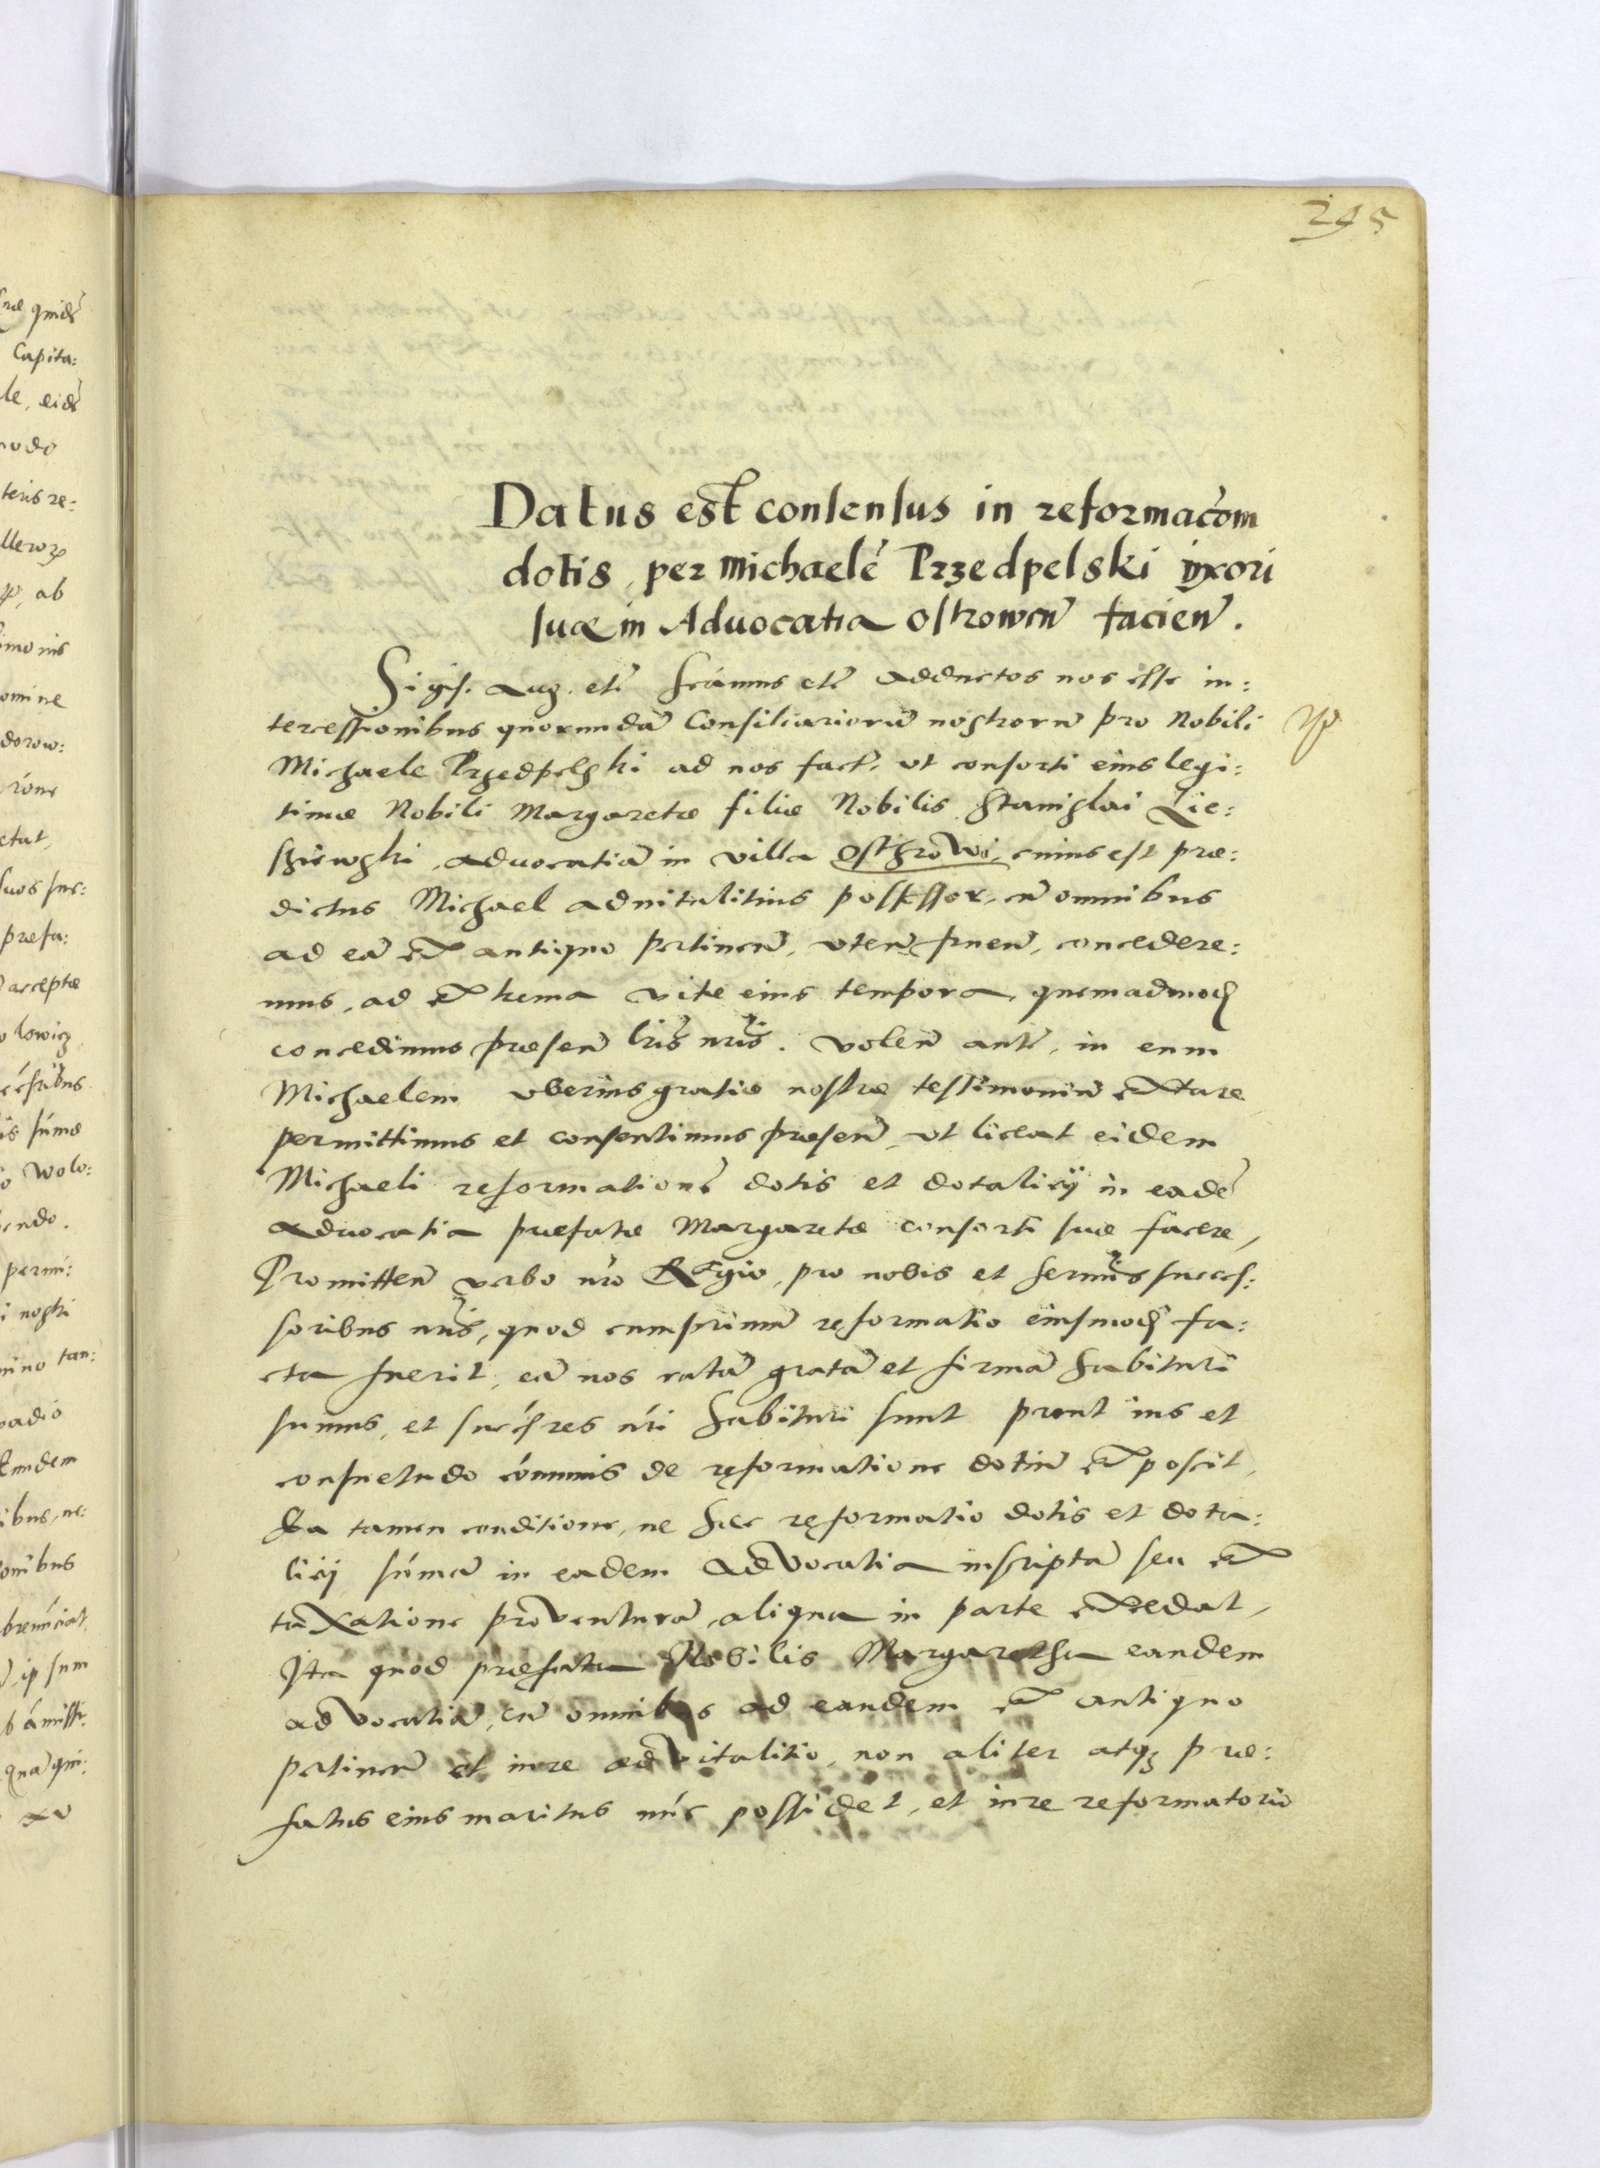 295
Datus est consensus in reformacōm
dotis, per Michaelē Przedpelski uxori
suæ in Advocatia Ostrowcn̄ facien̄.
Sigis. Aug. etc̄ Scám̄us etc̄ adductos nos esse in:
tercessionibus quorundā Consiliariorū nostrorū pro Nobili
Michaele Przedpelski ad nos fact., ut consorti eius legi:
timæ Nobili Margaretæ filiæ Nobilis Stanislai Lie:
advocatiā in villa Osthrowi, cuius est præ:
dictus Michael advitalitius possessor, cū omnibus
ad eā ex antiquo pertinen̄, uten̄ fruen̄, concedere:
mus, ad extrema vitæ eius tempora, quemadmoď
concedimus præsen̄ lr̄is nr̄is. Volen̄ autē, in eum
Michaelem uberius gratiæ nostræ testimoniū extare
permittimus et consentimus præsen̄, ut liceat eidem
Michaeli reformationē dotis et dotalicij in eadē
advocatia præfatæ Margaretæ consorti suæ facere,
Promitten̄ verbo nr̄o Regio, pro nobis et serm̄is succes:
soribus nr̄is, quod cumprimum reformatio eiusmoď fa:
cta fuerit, eā nos ratā gratā et firmā habituri
sumus, et succ̄sres nr̄i habituri sunt prout ius et
consuetudo com̄unis de reformatione dotiū exposcit,
Ea tamen conditione, ne hæc reformatio dotis et dota:
licij sum̄ā in eadem advocatia inscriptā seu ex
taxatione proventurā, aliqua in parte excedat,
Ita quod præfata Nobilis Margaretha eandem
advocatiā, cū omnibus ad eandem ex antiquo
pertinen̄ et iure advitalitio, non aliter atqȝ præ:
fatus eius maritus nūc possidet, et iure reformatorio